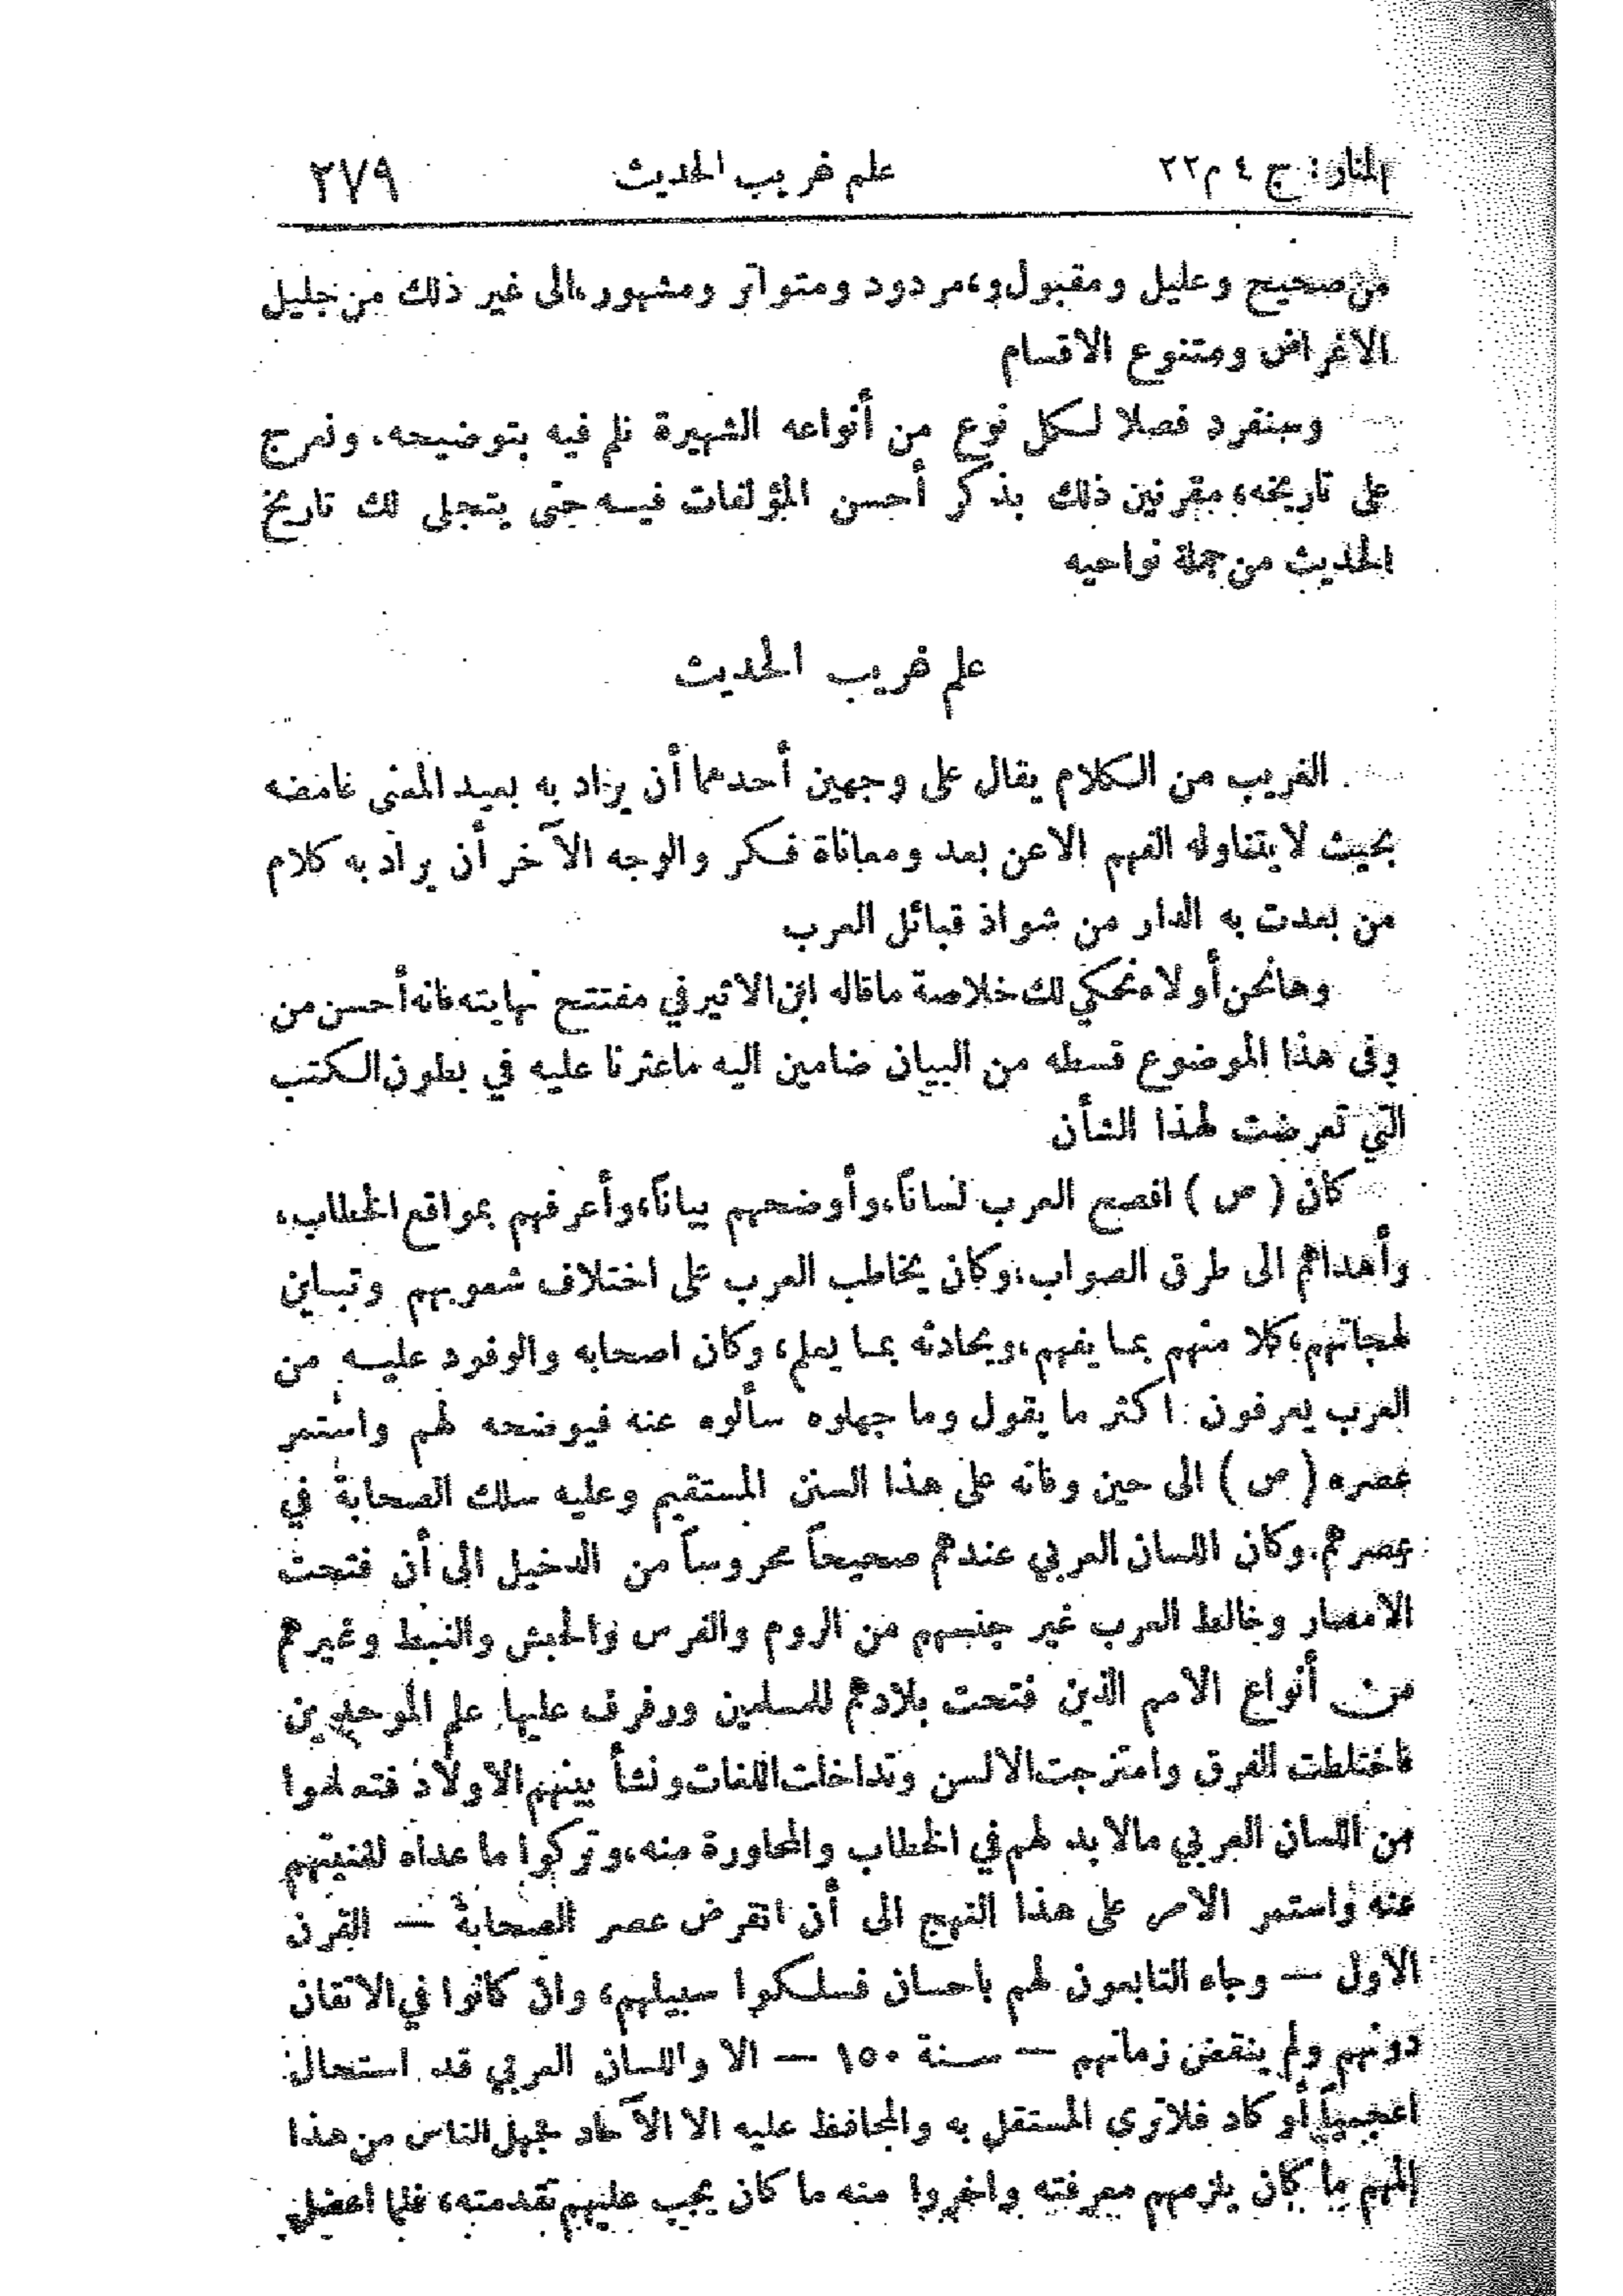 المنار: ج ٤ م ٢٢ علم غريب الحديث ٢٧٩
من صحيح وعليل ومقبول و،مردود ومتواتر ومشهور،الى غير ذلك من جليل
الاغراض ومتنوع الاقسام
وسنفرد فصلا لكل نوع من أنواعه الشهيرة نلم فيه بتوضيحه، ونعرج
على تاريخه، مقرنين ذلك بذكر أحسن المؤلفات فيه حتى يتجلى لك تاريخ
الحديث من جملة نواحيه
علم غريب الحديث
الغريب من الكلام يقال على وجهين أحدهما أن يراد به بعيد المعنى غامضه
بحيث لا يتناوله الفهم الا عن بعد ومعاناة فكر والوجه الآخر أن يراد به كلام
من بعدت به الدار من شواذ قبائل العرب
وها نحن أولاء نحكي لك خلاصة ما قاله ابن الاثير في مفتتح نهايته فانه أحسن من
وفى هذا الموضوع قسطه من البيان ضامين اليه ما عثرنا عليه في بطون الكتب
التي تعرضت لهذا الشأن
كان ( ص ) افصح العرب لساناً، وأوضحهم بياناً، وأعرفهم بمواقع الخطاب،
وأهداهم الى طرق الصواب، وكان يخاطب العرب على اختلاف شعوبهم وتباين
لهجاتهم، كلا منهم بما يفهم، ويحادثه بما يعلم، وكان اصحابه والوفود عليه من
العرب يعرفون اكثر ما يقول وما جهلوه سألوه عنه فيوضحه لهم واستمر
عصره ( ص ) الى حين وفاته على هذا السنن المستقيم وعليه سلك الصحابة في
عصرهم. وكان اللسان العربي عندهم صحيحاً محروساً من الدخيل الى أن فتحت
الامصار وخالط العرب غير جنسهم من الروم والفرس والحبش والنبط وغيرهم
من أنواع الامم الذين فتحت بلادهم للمسلمين ورفرف عليها علم الموحدين
فاختلطت الفرق وامتزجت الالسن وتداخلت اللغات ونشأ بينهم الاولاد فتعلموا
من اللسان العربي مالا بد لهم في الخطاب والمحاورة منه، وتركوا ما عداه لغنيتهم
عنه واستمر الامر على هذا النهج الى أن انقرض عصر الصحابة — القرن
الاول — وجاء التابعون لهم باحسان فسلكوا سبيلهم، وان كانوا في الاتقان
دونهم ولم ينقض زمانهم — سنة ١٥٠ — الا واللسان العربي قد استحال
اعجمياً أو كاد فلا ترى المستقل به والمحافظ عليه الا الآحاد فجهل الناس من هذا
المهم ما كان يلزمهم معرفته واخروا منه ما كان يجب عليهم تقدمته، فلما اعضل